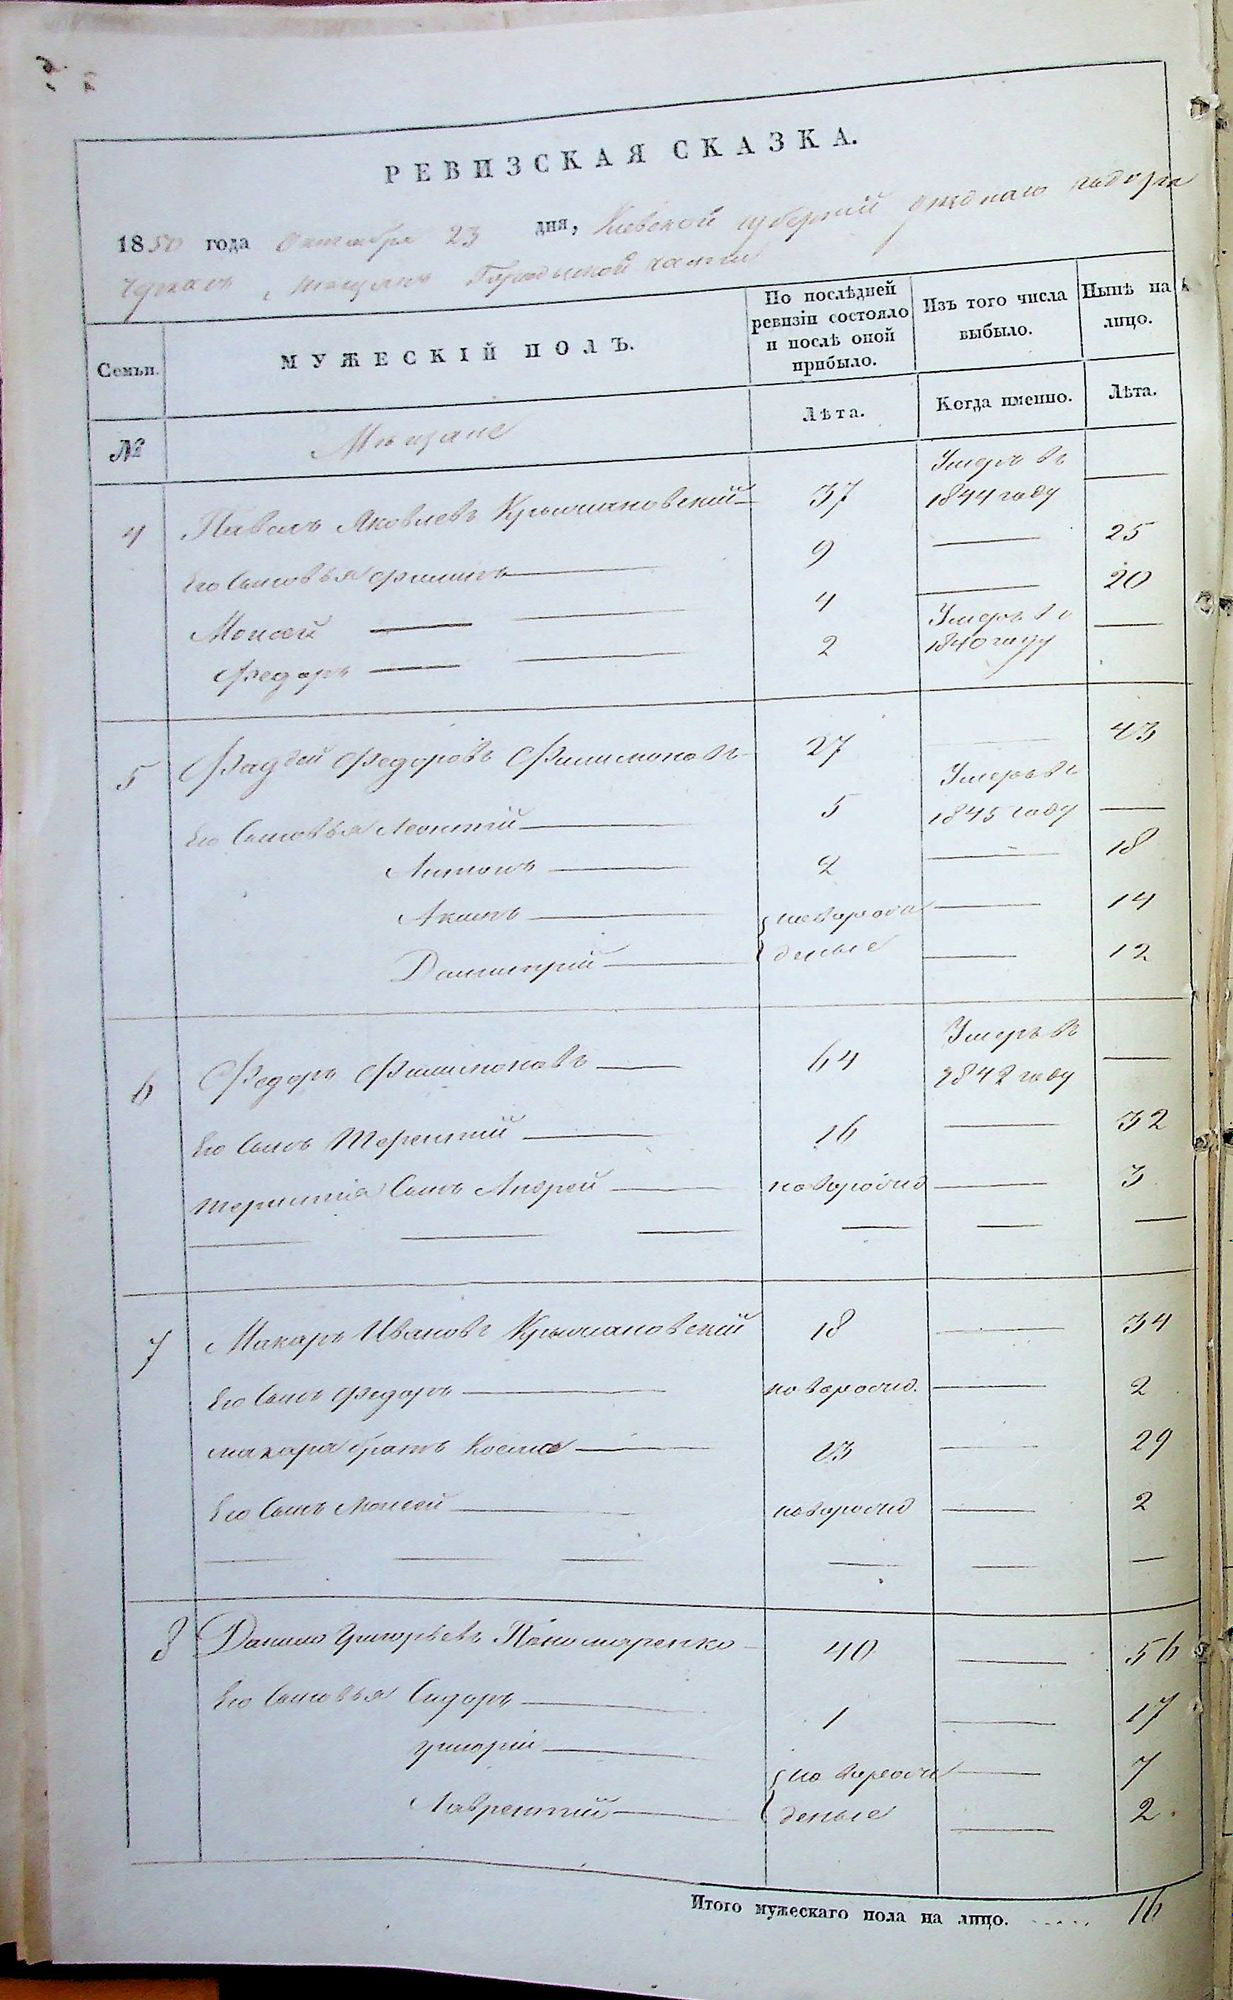 РЕВИЗСКАЯ СКАЗКА.
1850 года Октября 23 дня, Киевской губерний уѣднаго
Черкасъ, Мещанъ части
Семьи. МУЖЕСКІЙ ПОЛЪ. По послѣдней ревизіи состояло и послѣ оной прибыло. Изъ того числа выбыло. Нынѣ на лицо.
№ Лѣта. Когда именно. Лѣта.
Мѣщане
4 Павелъ Яковлевъ Крыжановскій 37 Умеръ въ 1844 году —
Его Сыновья Филипъ 9 — 25
Моисей 4 — 20
Федоръ 2 Умеръ въ 1840 году —
5 Фадѣй Федоровъ Филимоновъ 27 — 43
Его Сыновья Леонтій 5 Умеръ въ 1845 году —
Антонъ 2 — 18
Акимъ новорож — 14
Дмитрій деные — 12
6 Федоръ Филимоновъ 64 Умеръ въ 1842 году —
Его Сынъ Терентій 16 — 32
Терентія Сынъ Андрей новорожд — 3
7 Макаръ Ивановъ Крыжановскій 18 — 34
Его Сынъ Федоръ новорожд. — 2
Макара братъ Косма 13 — 29
Его Сынъ Моисей новорожд — 2
8 Данило Григорьевъ Пономаренко 40 — 56
Его Сыновья Сидоръ 1 — 17
Григорій новорож — 7
Лаврентій деные — 2
Итого мужескаго пола на лицо. ..... 16